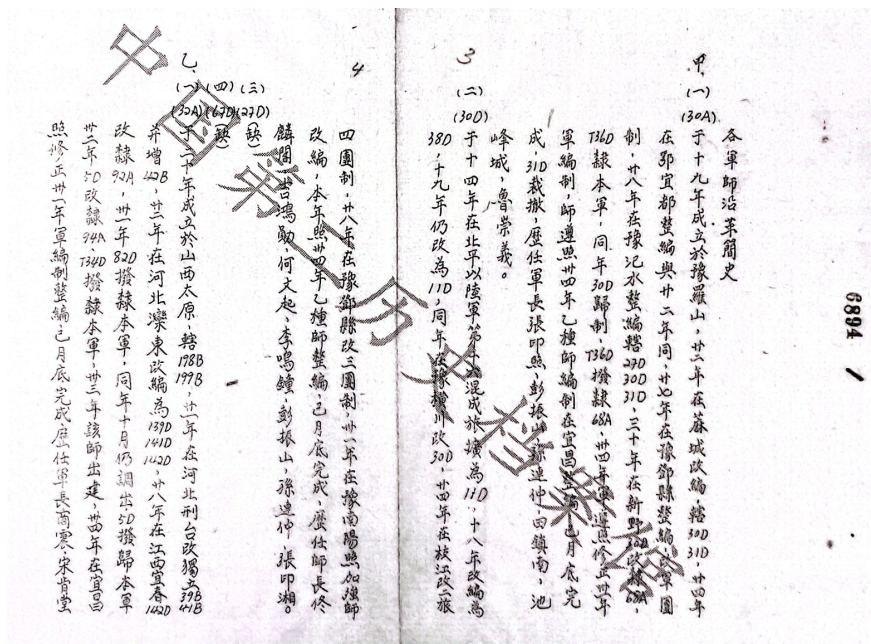 各軍師沿革簡史
甲、(一)(30A)于十九年成立於豫羅山,廿二年在蔴城改編轄30D31D,廿四年
在鄂宜都整編與廿二年同,廿七年在豫鄧縣整編,改軍團
制,廿八年在豫汜水整編轄27D30D31D,三十年在新野
T36D隸本軍,同年30D歸制,T36D撥隸68A,卅四年遵照修正卅年
軍編制,師遵照卅四年乙種師編制在宜昌 己月底完
成,31D裁撤,歷任軍長張印照,彭振山,孫連仲,田鎮南,池
峰城,魯崇義。
3
(二)(30D)于十四年在北平以陸軍第 混成旅擴為11D,十八年改編為
38D,十九年仍改為11D,同年在豫潢川改30D,廿四年在枝江改二旅
四團制,廿八年在豫鄧縣改三團制,卅一年在豫南陽照加強師
改編,本年照卅四年乙種師整編,己月底完成,歷任師長佟
麟閣,吉鴻勛,何文起,李鳴鐘,彭振山,孫連仲,張印湘。
4
(三)(27D)(缺)
(四)(67D)(缺)
乙、(一)(32A)于二十年成立於山西太原,轄198B199B,廿一年在河北刑台改獨立39B41B
并增42B,廿二年在河北灤東改編為139D141D142D,廿八年在江西宜春142D
改隸92A,卅一年82D撥隸本軍,同年十月仍調出5D撥歸本軍
卅二年5D改隸94A,T34D撥隸本軍,卅三年該師出建,卅四年在宜昌
照修正卅一年軍編制整編己月底完成歷任軍長商震,宋肯堂
6894
中国第二历史档案馆